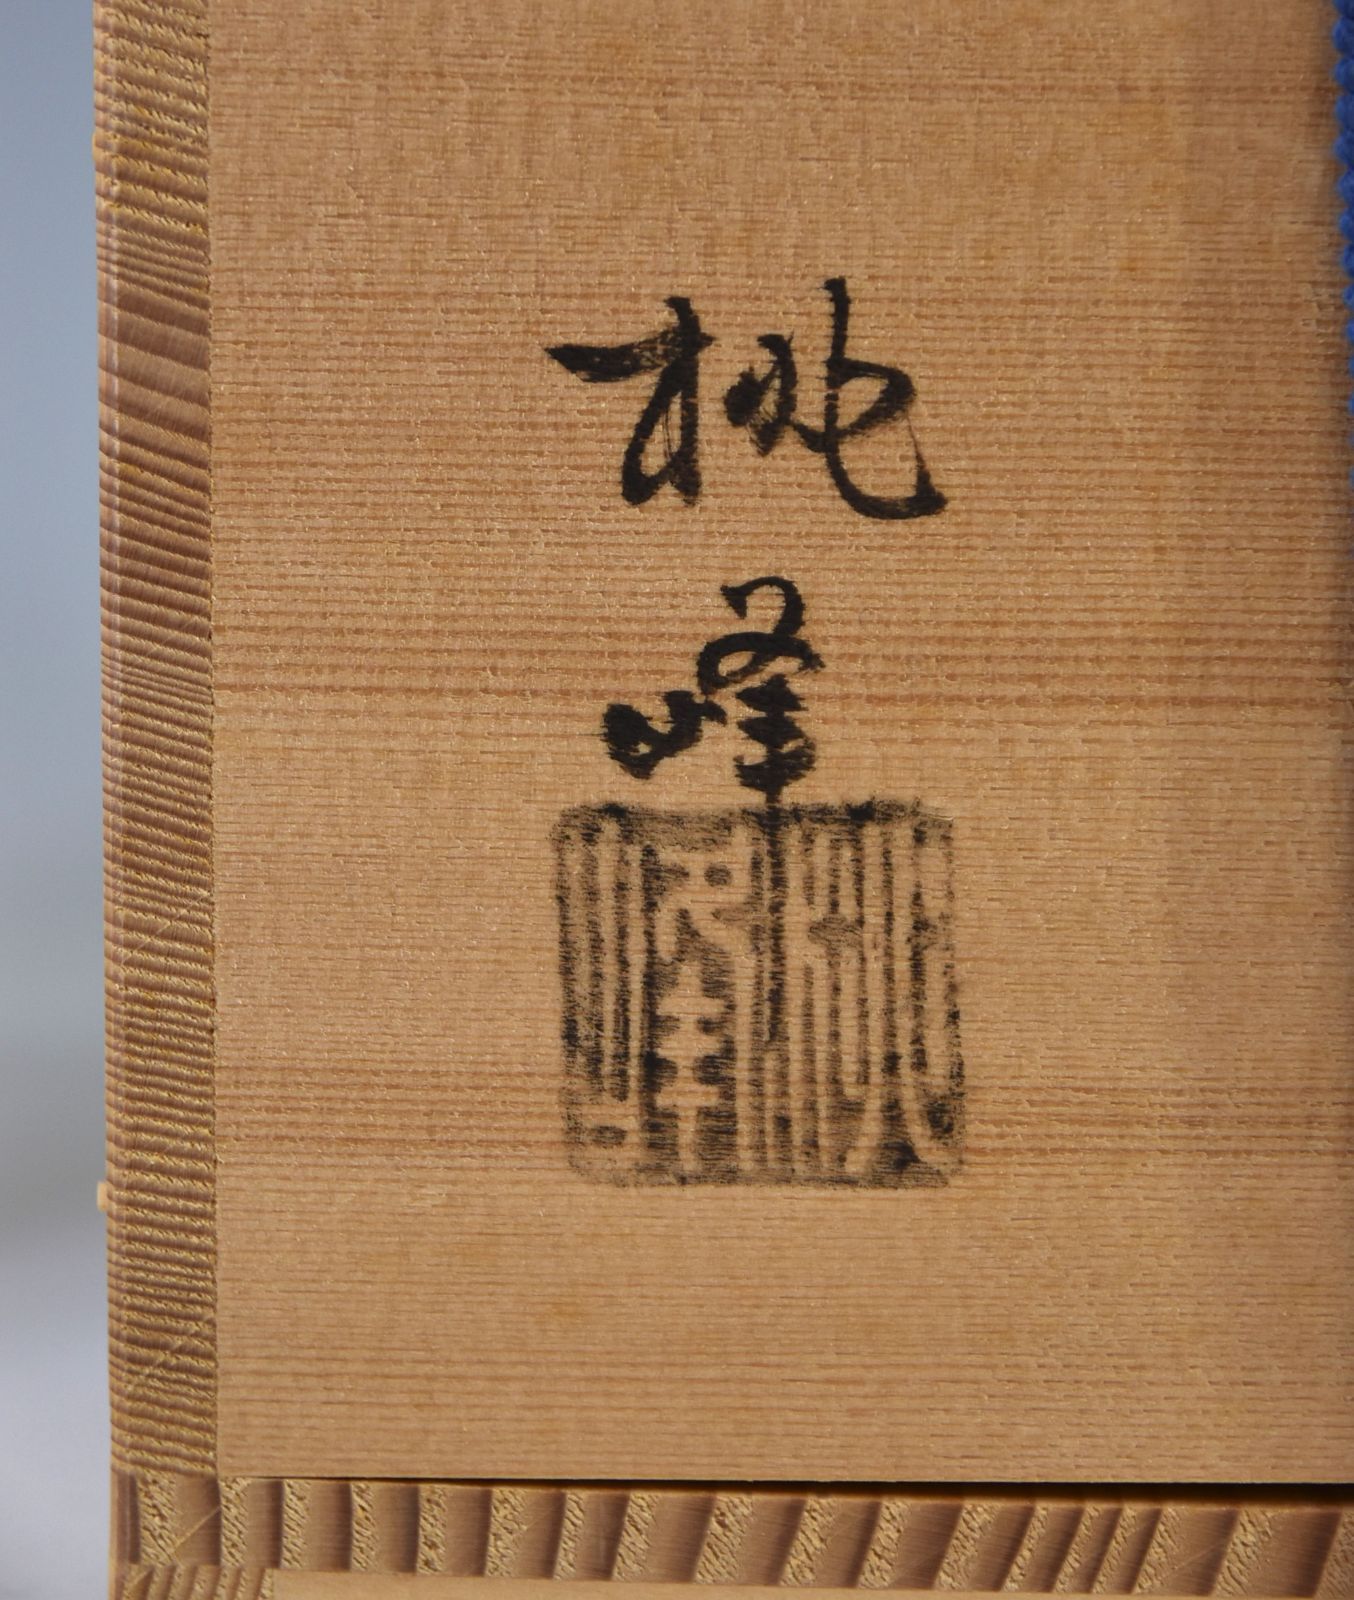 桃峰
桃峰